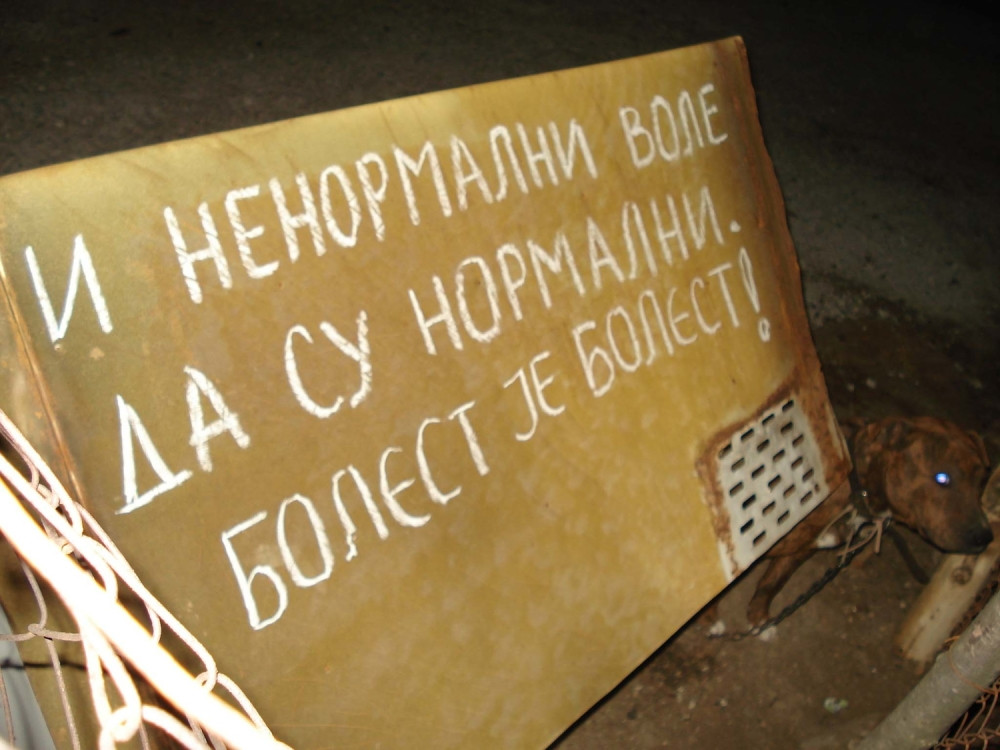 И НЕНОРМАЛНИ ВОЛЕ
ДА СУ НОРМАЛНИ.
БОЛЕСТ ЈЕ БОЛЕСТ!